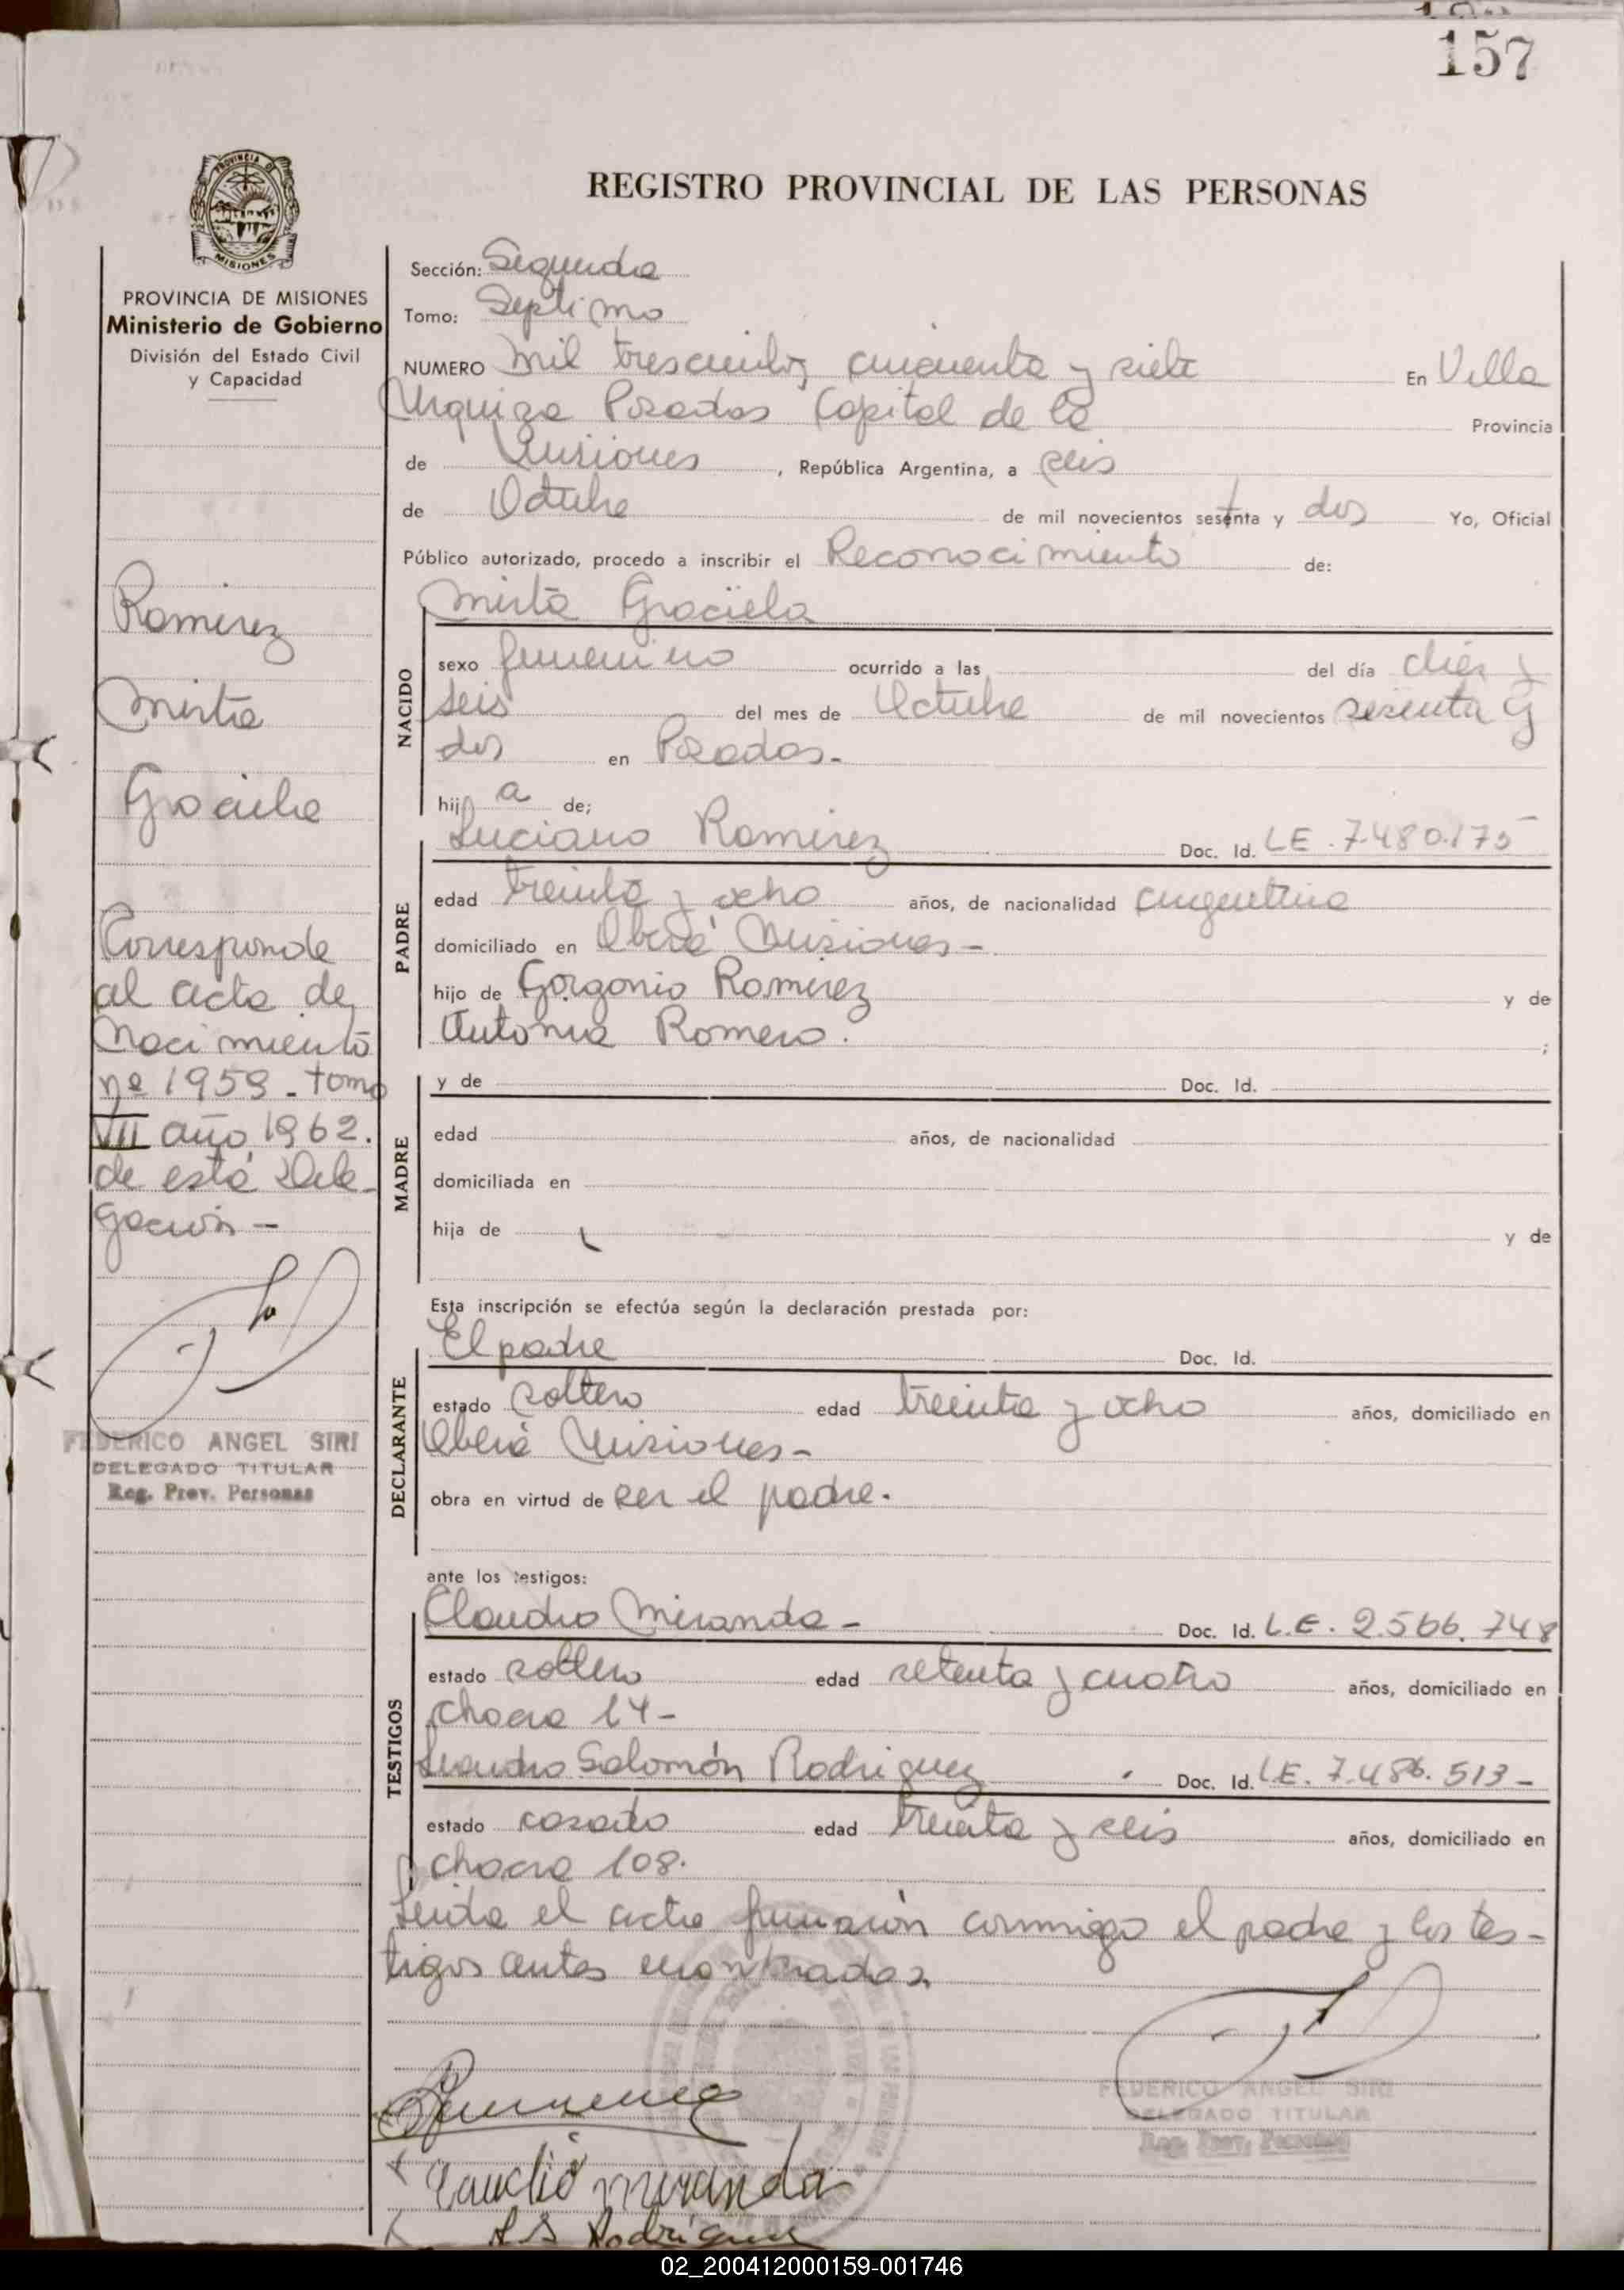 157
PROVINCIA DE MISIONES
REGISTRO PROVINCIAL DE LAS PERSONAS
PROVINCIA DE MISIONES
Ministerio de Gobierno
División del Estado Civil
y Capacidad
Ramirez
Mirta
Graciela
Corresponde
al acta de
Nacimiento
nº 1959 - tomo
VII año 1962.
de esta Dele-
gación -
FEDERICO ANGEL SIRI
DELEGADO TITULAR
Reg. Prov. Personas
Sección: Segunda
Tomo: Septimo
NUMERO Mil trescientos cincuenta y siete En Villa
Urquiza Posadas Capital de la Provincia
de Misiones, República Argentina, a seis
de Octubre de mil novecientos sesenta y dos Yo, Oficial
Público autorizado, procedo a inscribir el Reconocimiento de:
Mirta Graciela
NACIDO
sexo femenino ocurrido a las del día dies y
seis del mes de Octubre de mil novecientos sesenta y
dos en Posadas.-
hij a de;
Luciano Ramirez Doc. Id. LE. 7480.175
PADRE
edad treinta y ocho años, de nacionalidad argentina
domiciliado en Oberá Misiones -
hijo de Gorgonio Ramirez y de
Antonia Romero. ;
MADRE
y de Doc. Id.
edad años, de nacionalidad
domiciliada en
hija de y de
Esta inscripción se efectúa según la declaración prestada por:
DECLARANTE
El padre Doc. Id.
estado soltero edad treinta y ocho años, domiciliado en
Oberá Misiones -
obra en virtud de ser el padre.
ante los testigos:
TESTIGOS
Claudio Miranda - Doc. Id. L.E. 2.566.748
estado soltero edad setenta y cuatro años, domiciliado en
chacra 14 -
Leandro Salomón Rodriguez Doc. Id. L.E. 7.486.513 -
estado casado edad treinta y seis años, domiciliado en
chacra 108.
Leida el acta firmarón conmigo el padre y los tes-
tigos antes
FEDERICO ANGEL SIRI
DELEGADO TITULAR
Reg. Prov. Personas
Claudio Miranda
L S Rodriguez
02_200412000159-001746